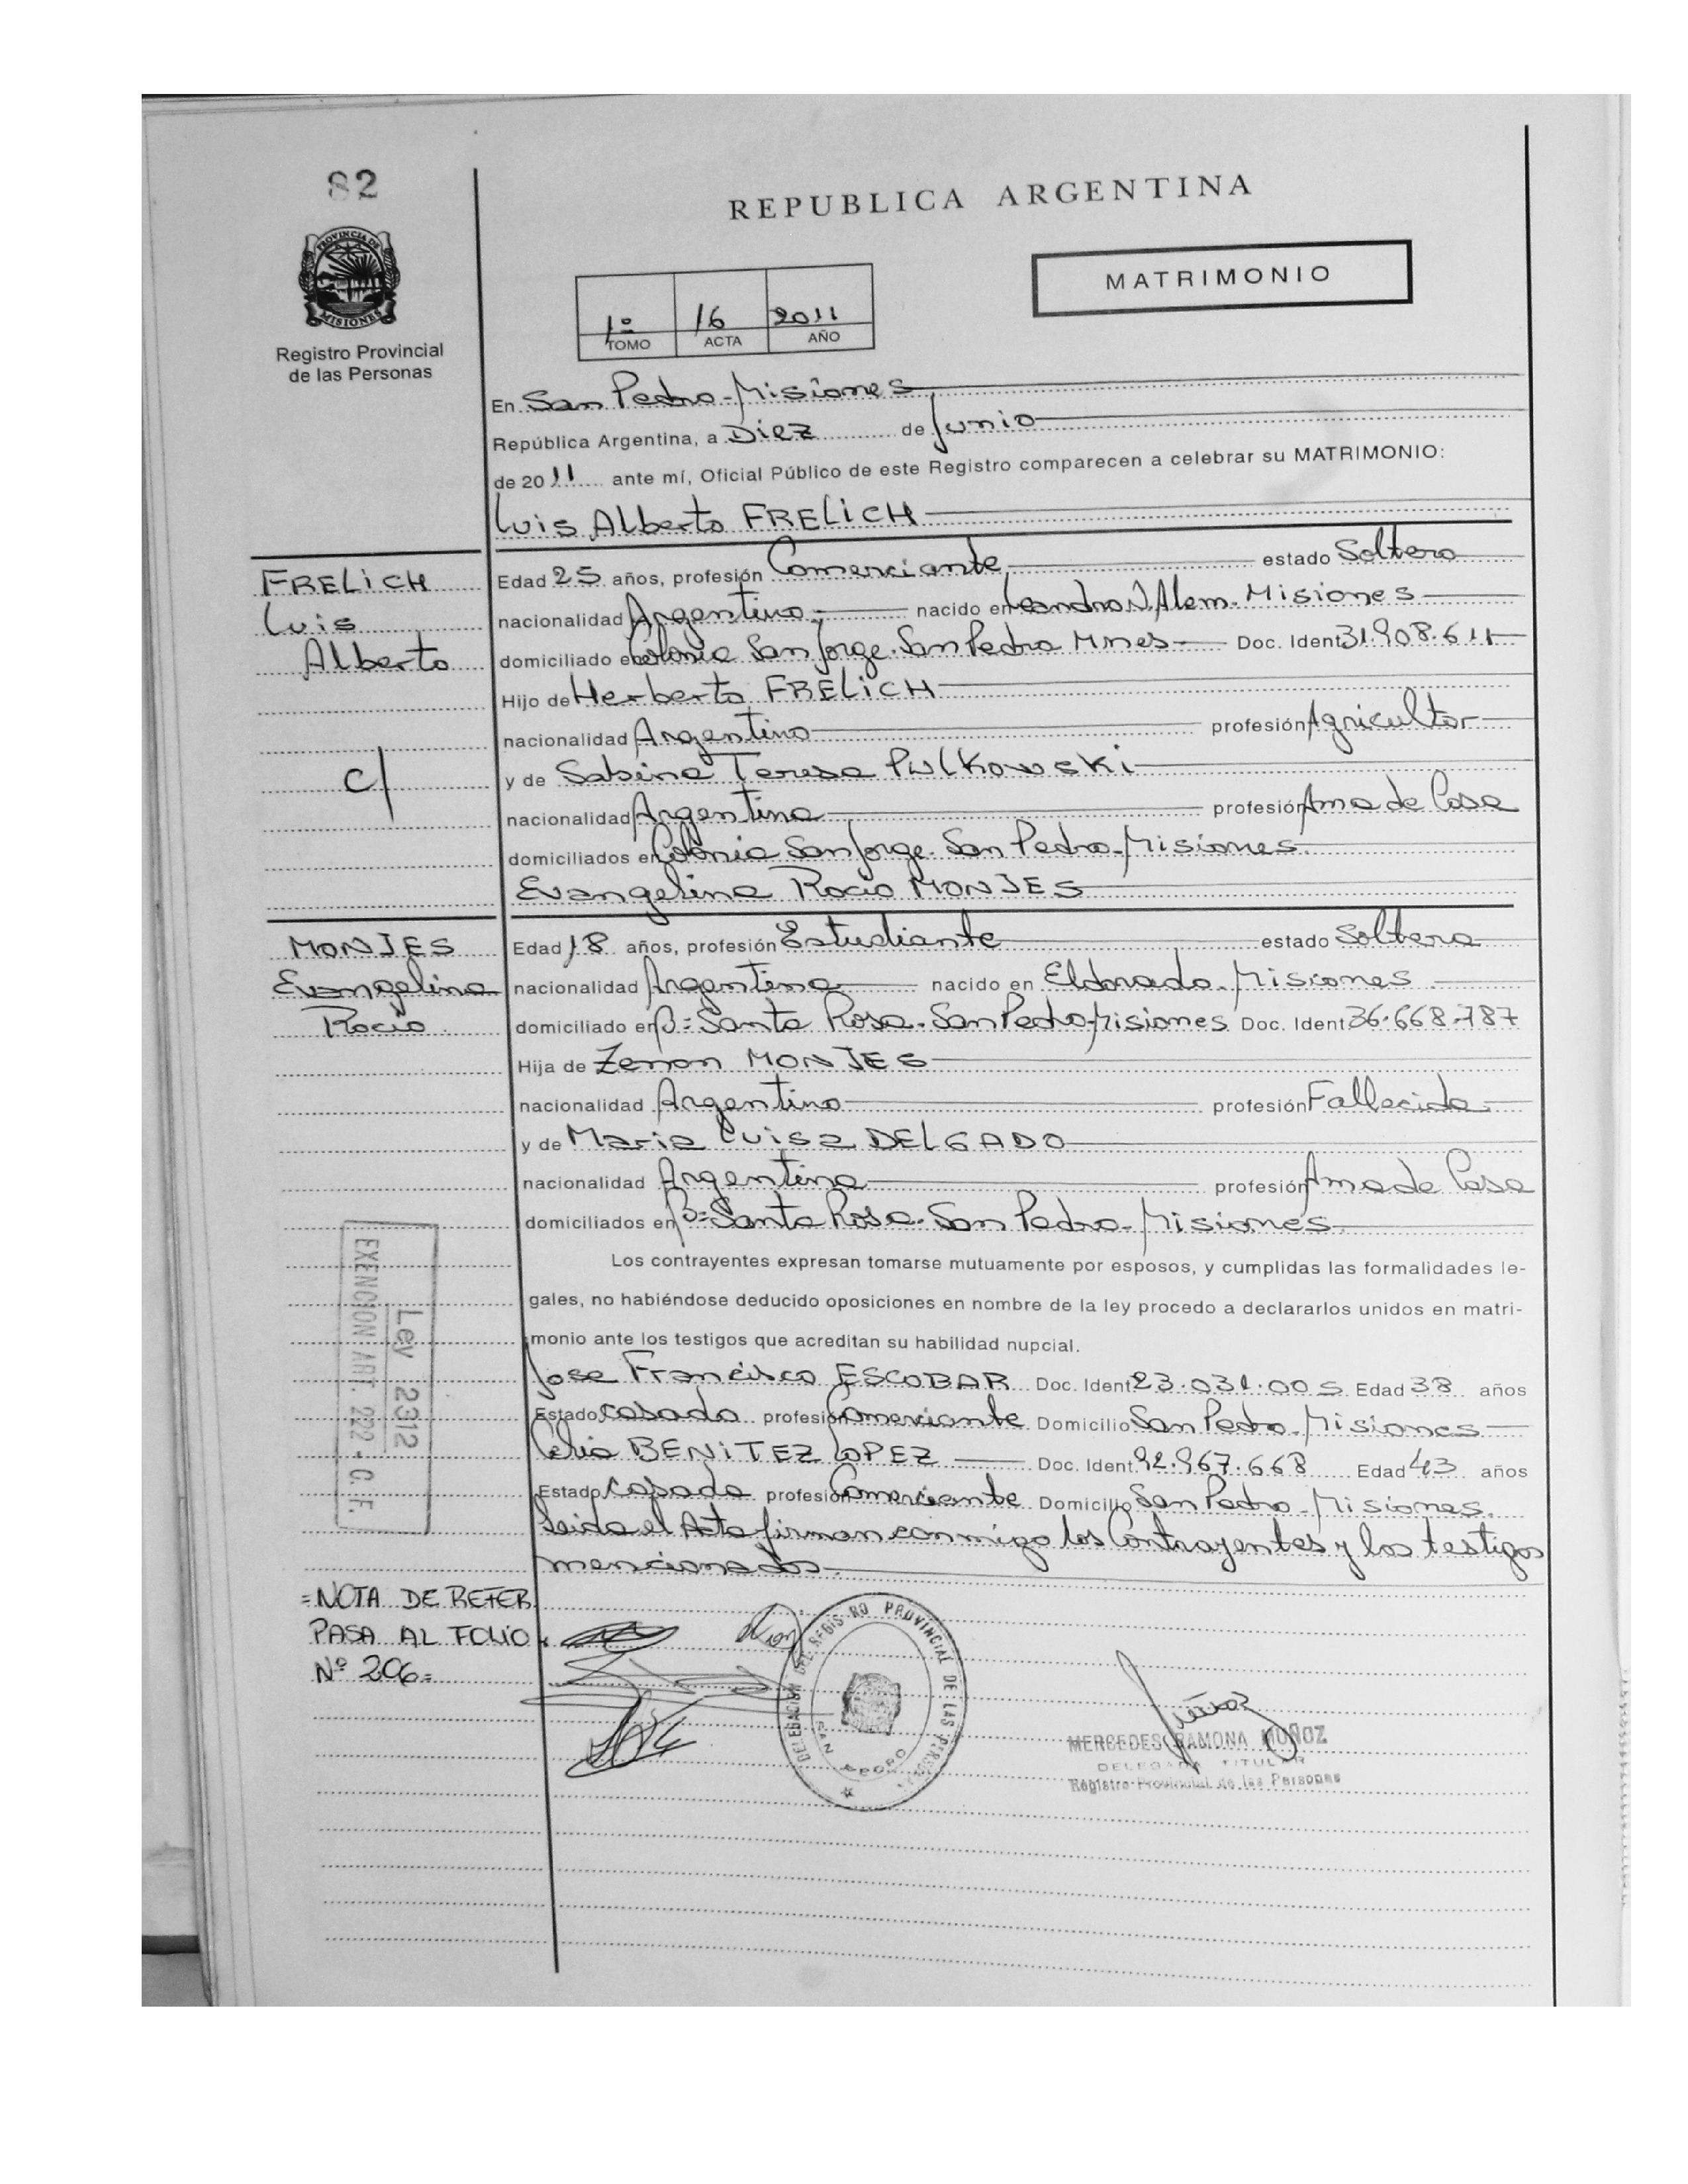 82
PROVINCIA DE
MISIONES
Registro Provincial
de las Personas
REPUBLICA ARGENTINA
MATRIMONIO
1º 16 2011
TOMO ACTA AÑO
En San Pedro-Misiones
República Argentina, a Diez de Junio
de 2011 ante mí, Oficial Público de este Registro comparecen a celebrar su MATRIMONIO:
Luis Alberto FRELICH
FRELICH
Luis
Alberto
c/
Edad 25 años, profesión Comerciante estado Soltero
nacionalidad Argentino nacido en Leandro N. Alem-Misiones
domiciliado en Colonia San Jorge-San Pedro Mnes Doc. Ident 31.908.611
Hijo de Herberto FRELICH
nacionalidad Argentino profesión Agricultor
y de Sabina Teresa PULKOWSKI
nacionalidad Argentina profesión Ama de Casa
domiciliados en Colonia San Jorge-San Pedro-Misiones
Evangelina Rocio MONJES
MONJES
Evangelina
Rocio
Edad 18 años, profesión Estudiante estado Soltera
nacionalidad Argentina nacido en Eldorado-Misiones
domiciliado en Bº Santa Rosa-San Pedro-Misiones Doc. Ident 36.668.787
Hija de Zenon MONJES
nacionalidad Argentino profesión Fallecido
y de Maria Luisa DELGADO
nacionalidad Argentina profesión Ama de Casa
domiciliados en Bº Santa Rosa-San Pedro-Misiones
Los contrayentes expresan tomarse mutuamente por esposos, y cumplidas las formalidades le-
gales, no habiéndose deducido oposiciones en nombre de la ley procedo a declararlos unidos en matri-
monio ante los testigos que acreditan su habilidad nupcial.
Jose Francisco ESCOBAR Doc. Ident 23.031.005 Edad 38 años
Estado casado profesión Comerciante Domicilio San Pedro-Misiones
Celia BENITEZ LOPEZ Doc. Ident 92.967.668 Edad 43 años
Estado Casada profesión Comerciante Domicilio San Pedro-Misiones
Leida el Acta firman conmigo los Contrayentes y los testigos
mencionados.
Ley 2312
EXENCION ART. 222 - C. F.
=NOTA DE REFER.
PASA AL FOLIO
Nº 206=
DELEGACION DEL REGISTRO PROVINCIAL DE LAS PERSONAS
SAN PEDRO
MERCEDES RAMONA MUÑOZ
DELEGADA TITULAR
Registro Provincial de las Personas